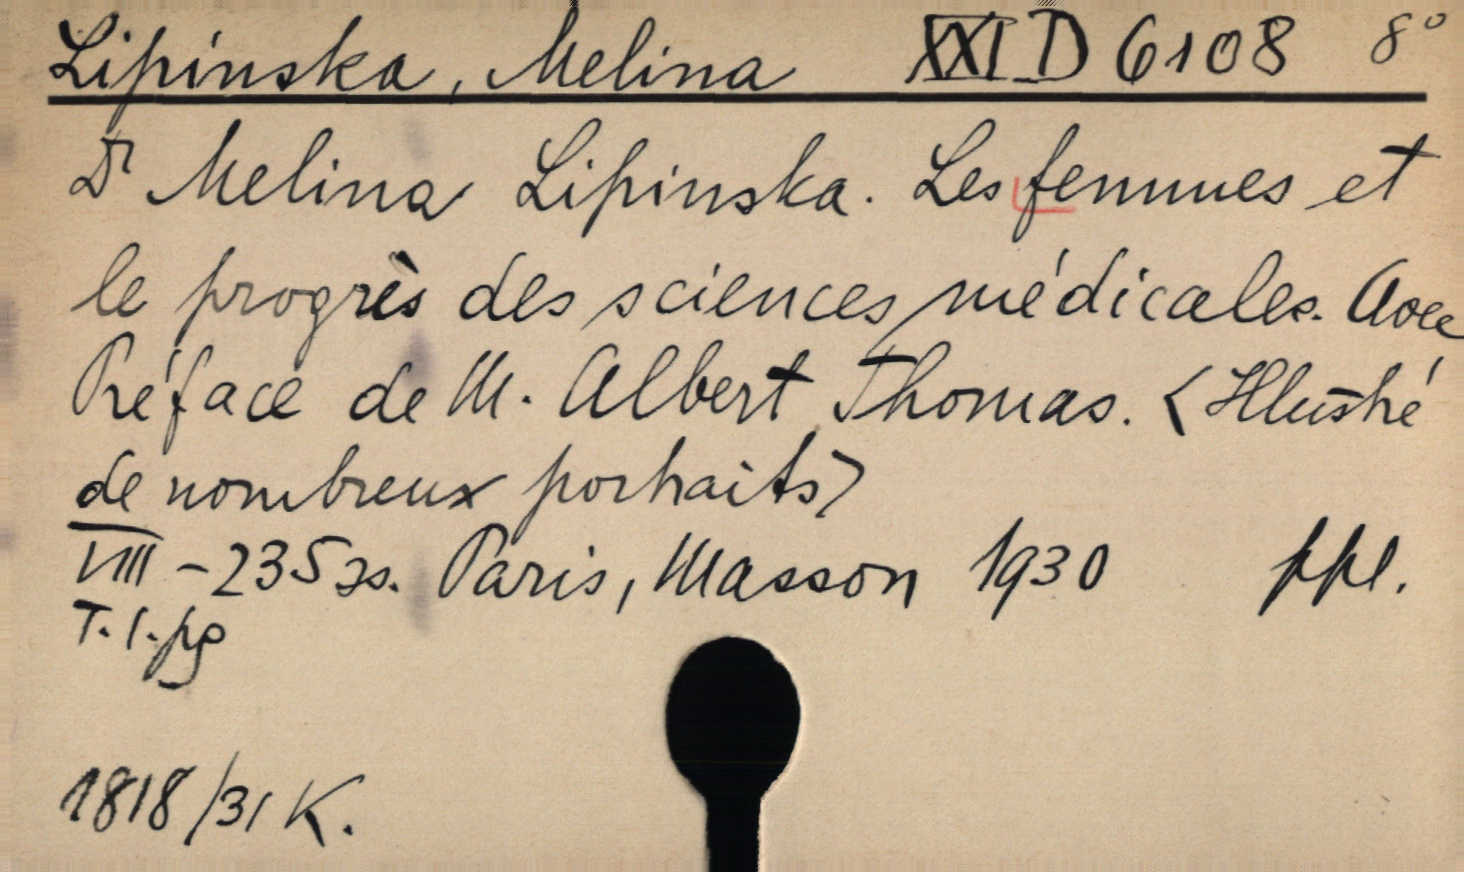 Lipinska, Melina XXI D 6108 8°
Dr Melina Lipinska. Les femmes et
le progrès des sciences médicales. Avec
Préface de M. Albert Thomas. <Illustré
de nombreux portraits>
VIII - 235 ss. Paris, Masson 1930 ppl.
T. 1. pg
1818/31 K.